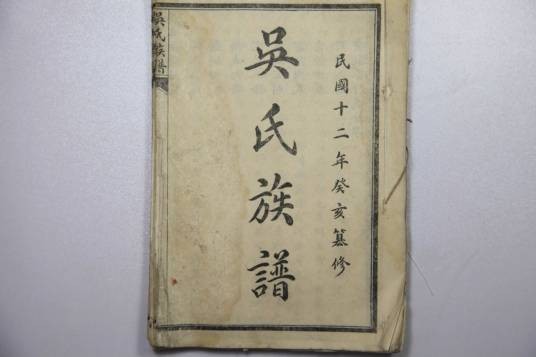 民國十二年癸亥篡修
吳氏族譜
吳氏族譜